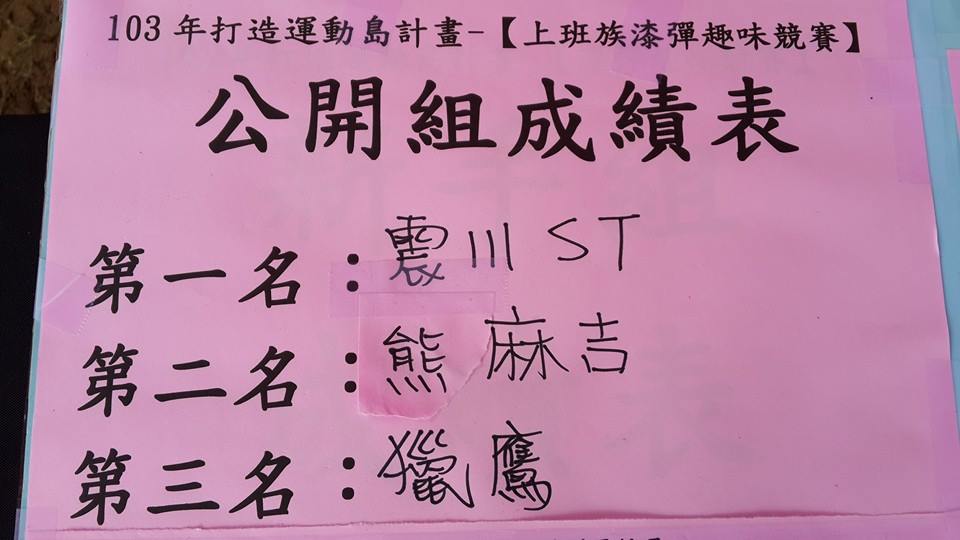 103年打造運動島計畫-【上班族漆彈趣味競賽】
公開組成績表
第一名：震川ST
第二名：熊麻吉
第三名：獵鷹